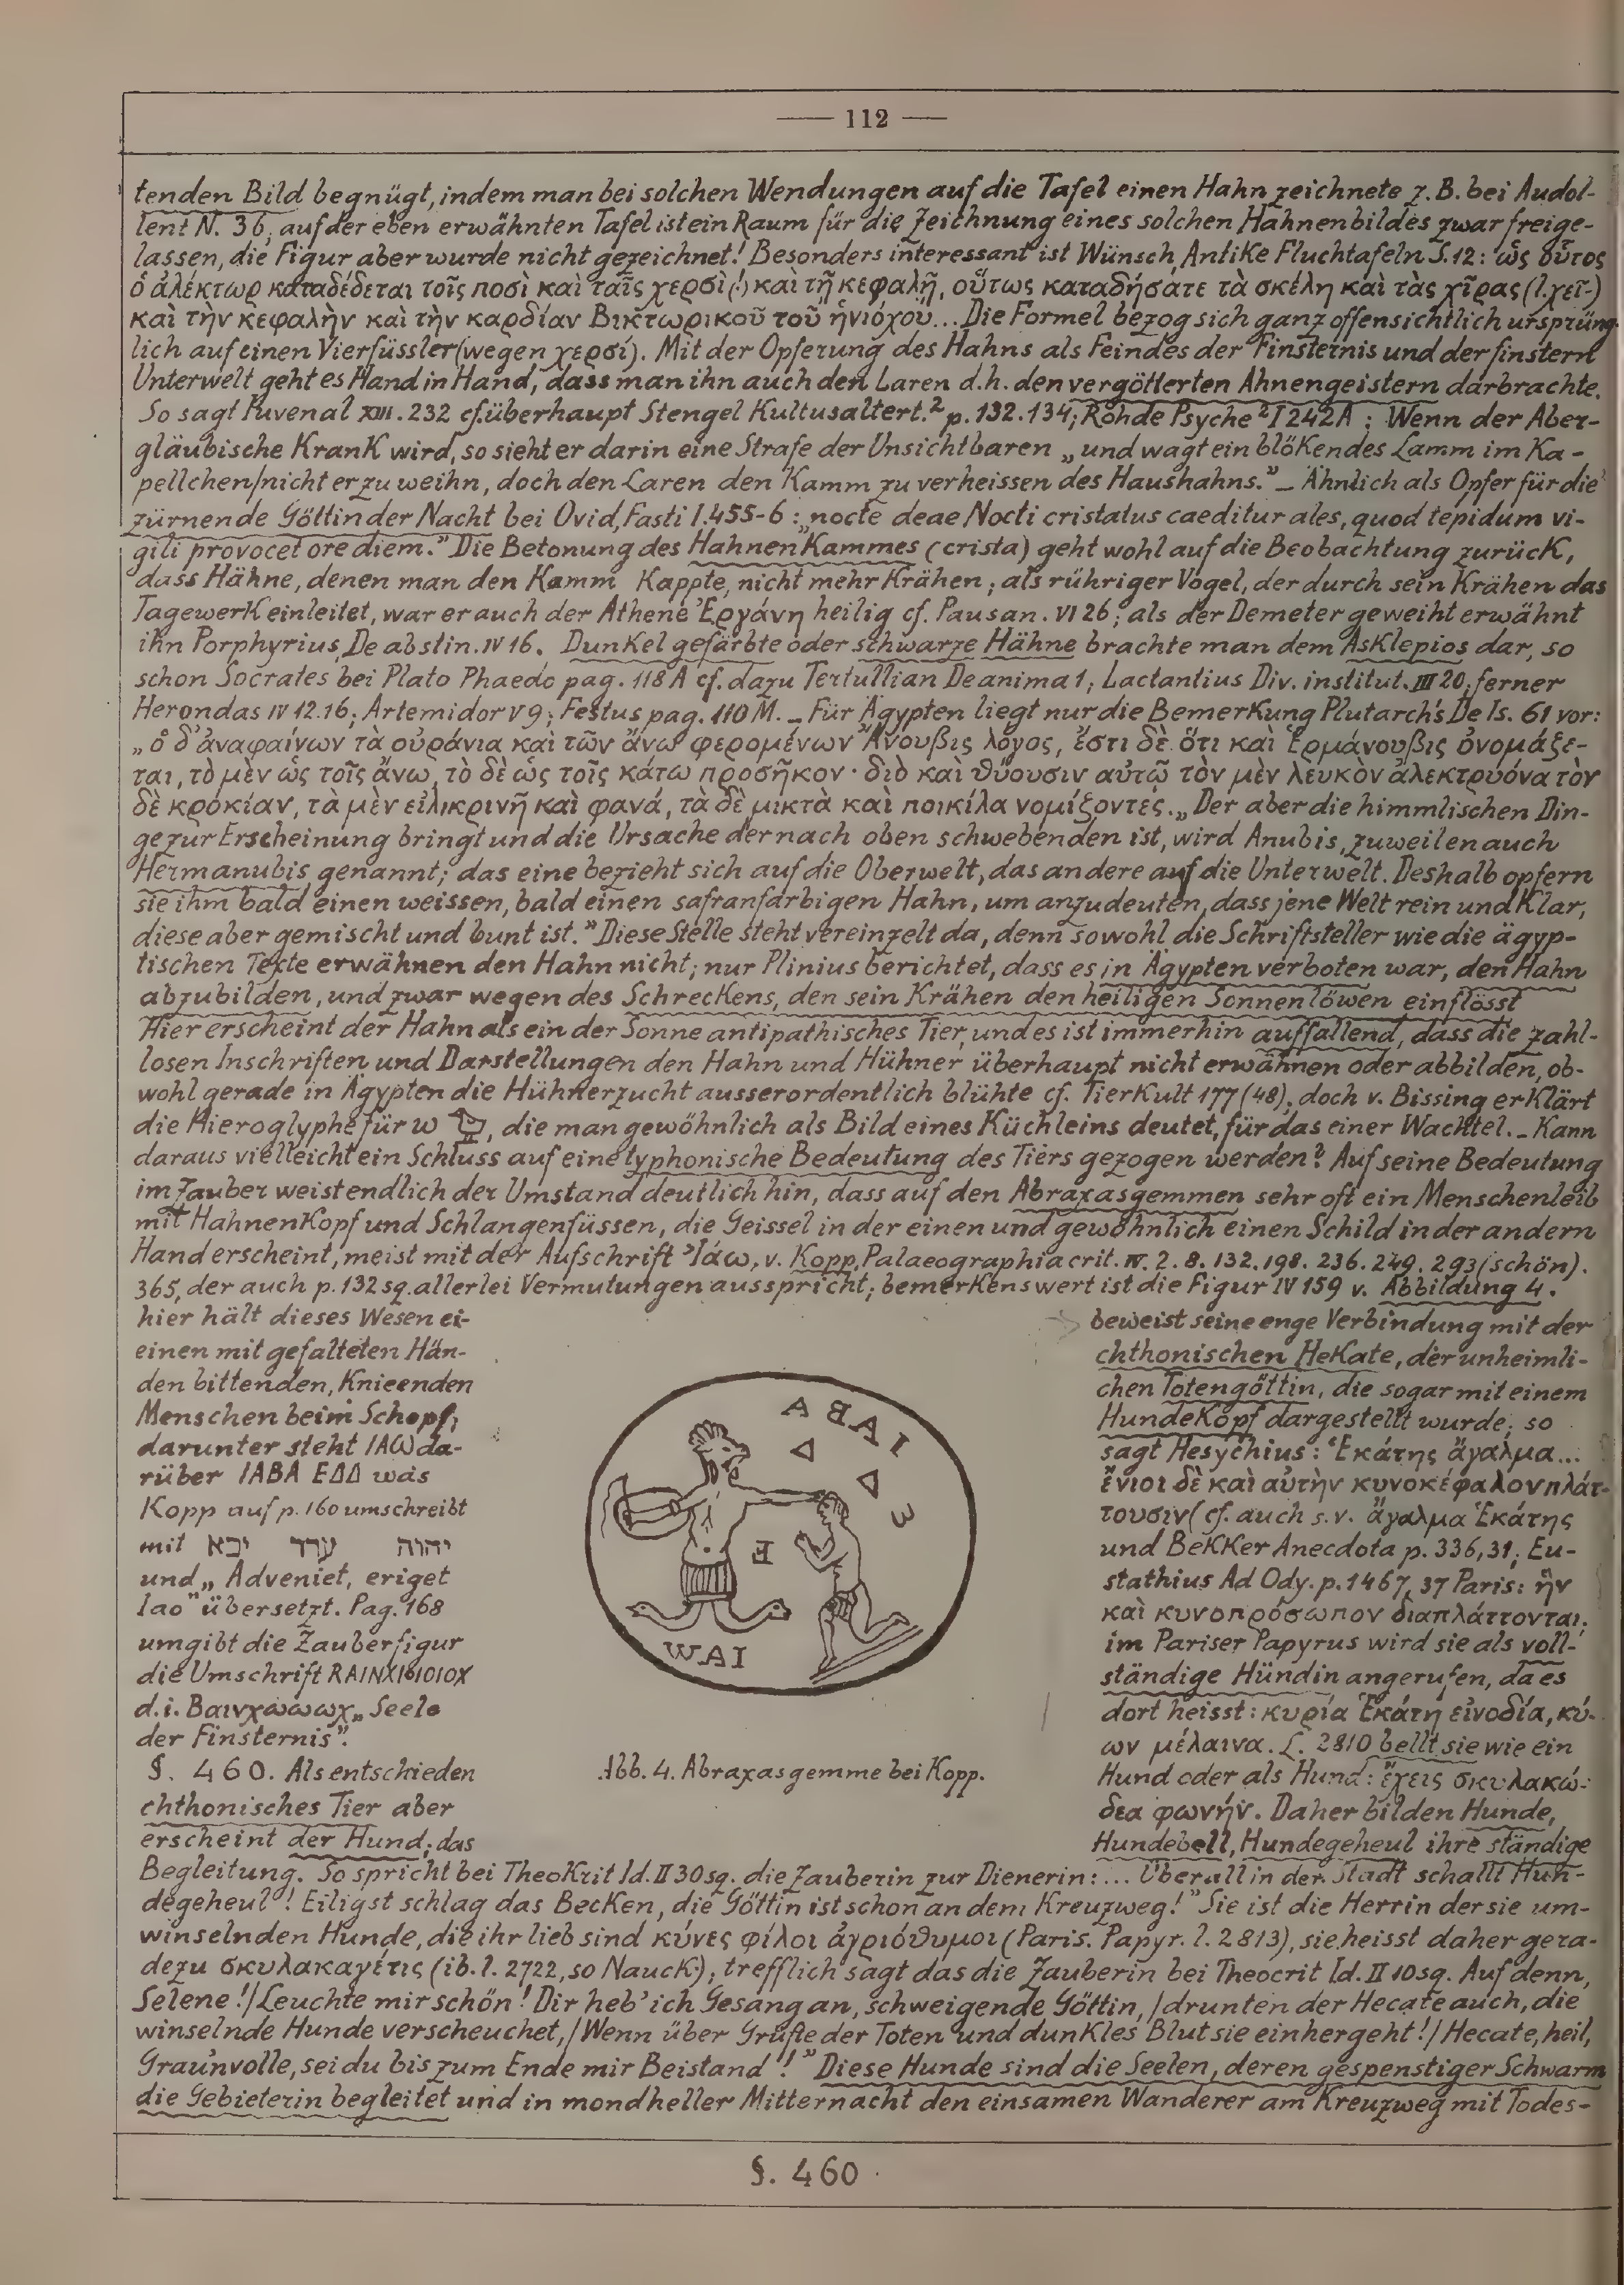 — 112 —
tenden Bild begnügt, indem man bei solchen Wendungen auf die Tafel einen Hahn zeichnete z. B. bei Audol-
lent N. 36; auf der eben erwähnten Tafel ist ein Raum für die Zeichnung eines solchen Hahnenbildes zwar freige-
lassen, die Figur aber wurde nicht gezeichnet! Besonders interessant ist Wünsch, Antike Fluchtafeln S. 12: ὡς οὗτος
ὁ ἀλέκτωρ καταδέδεται τοῖς ποσὶ καὶ ταῖς χερσὶ (!) καὶ τῇ κεφαλῇ, οὕτως καταδήσατε τὰ σκέλη καὶ τὰς χῖρας (l. χεῖ-)
καὶ τὴν κεφαλὴν καὶ τὴν καρδίαν Βικτωρικοῦ τοῦ ἡνιόχου... Die Formel bezog sich ganz offensichtlich ursprüng-
lich auf einen Vierfüssler (wegen χερσί). Mit der Opferung des Hahns als Feindes der Finsternis und der finstern
Unterwelt geht es Hand in Hand, dass man ihn auch den Laren d.h. den vergötterten Ahnengeistern darbrachte.
So sagt Juvenal XIII. 232 cf. überhaupt Stengel Kultusaltert.² p. 132. 134; Rohde Psyche² I 242 A: Wenn der Aber-
gläubische Krank wird, so sieht er darin eine Strafe der Unsichtbaren „und wagt ein blökendes Lamm im Ka-
pellchen/nicht er zu weihn, doch den Laren den Kamm zu verheissen des Haushahns.” – Ähnlich als Opfer für die
zürnende Göttin der Nacht bei Ovid, Fasti I. 455-6: „nocte deae Nocti cristatus caeditur ales, quod tepidum vi-
gili provocet ore diem.” Die Betonung des HahnenKammes (crista) geht wohl auf die Beobachtung zurück,
dass Hähne, denen man den Kamm Kappte, nicht mehr Krähen; als rühriger Vogel, der durch sein Krähen das
Tagewerk einleitet, war er auch der Athene Ἐργάνη heilig cf. Pausan. VI 26; als der Demeter geweiht erwähnt
ihn Porphyrius, De abstin. IV 16. Dunkel gefärbte oder schwarze Hähne brachte man dem Asklepios dar, so
schon Socrates bei Plato Phaedo pag. 118 A cf. dazu Tertullian De anima 1; Lactantius Div. institut. III 20; ferner
Herondas IV 12.16; Artemidor V 9; Festus pag. 110 M. – Für Ägypten liegt nur die Bemerkung Plutarch's De Is. 61 vor:
„ὁ δ' ἀναφαίνων τὰ οὐράνια καὶ τῶν ἄνω φερομένων Ἄνουβις λόγος, ἔστι δὲ ὅτι καὶ Ἑρμάνουβις ὀνομάζε-
ται, τὸ μὲν ὡς τοῖς ἄνω, τὸ δὲ ὡς τοῖς κάτω προσῆκον · διὸ καὶ θύουσιν αὐτῷ τὸν μὲν λευκὸν ἀλεκτρυόνα τὸν
δὲ κροκίαν, τὰ μὲν εἰλικρινῆ καὶ φανά, τὰ δὲ μικτὰ καὶ ποικίλα νομίζοντες. „Der aber die himmlischen Din-
ge zur Erscheinung bringt und die Ursache der nach oben schwebenden ist, wird Anubis, zuweilen auch
Hermanubis genannt; das eine bezieht sich auf die Oberwelt, das andere auf die Unterwelt. Deshalb opfern
sie ihm bald einen weissen, bald einen safranfarbigen Hahn, um anzudeuten, dass jene Welt rein und Klar,
diese aber gemischt und bunt ist.” Diese Stelle steht vereinzelt da, denn sowohl die Schriftsteller wie die ägyp-
tischen Texte erwähnen den Hahn nicht; nur Plinius berichtet, dass es in Ägypten verboten war, den Hahn
abzubilden, und zwar wegen des Schreckens, den sein Krähen den heiligen Sonnenlöwen einflösst
Hier erscheint der Hahn als ein der Sonne antipathisches Tier, und es ist immerhin auffallend, dass die zahl-
losen Inschriften und Darstellungen den Hahn und Hühner überhaupt nicht erwähnen oder abbilden, ob-
wohl gerade in Ägypten die Hühnerzucht ausserordentlich blühte cf. Tierkult 177 (48); doch v. Bissing erklärt
die Hieroglyphe für w, die man gewöhnlich als Bild eines Küchleins deutet, für das einer Wachtel. – Kann
daraus vielleicht ein Schluss auf eine typhonische Bedeutung des Tiers gezogen werden? Auf seine Bedeutung
im Zauber weist endlich der Umstand deutlich hin, dass auf den Abraxasgemmen sehr oft ein Menschenleib
mit Hahnenkopf und Schlangenfüssen, die Geissel in der einen und gewöhnlich einen Schild in der andern
Hand erscheint, meist mit der Aufschrift Ἰάω, v. Kopp, Palaeographia crit. IV. 2. 8. 132. 198. 236. 249. 293 (schön).
365, der auch p. 132 sq. allerlei Vermutungen ausspricht; bemerkenswert ist die Figur IV 159 v. Abbildung 4.
hier hält dieses Wesen ei-
einen mit gefalteten Hän-
den bittenden, Knieenden
Menschen beim Schopf;
darunter steht ΙΑω da-
rüber ΙΑΒΑ ΕΔΔ was
Kopp auf p. 160 umschreibt
mit יבא ערד יהוה
und „Adveniet, eriget
Iao” übersetzt. Pag. 168
umgibt die Zauberfigur
die Umschrift
d.i. Βαινχωωωχ „Seele
der Finsternis”.
§. 460. Als entschieden
chthonisches Tier aber
erscheint der Hund; das
ΙΑΒΑ
Δ Δ Ε
Ε
ΙΑW
Abb. 4. Abraxasgemme bei Kopp.
beweist seine enge Verbindung mit der
chthonischen Hekate, der unheimli-
chen Totengöttin, die sogar mit einem
HundeKopf dargestellt wurde; so
sagt Hesychius: Ἑκάτης ἄγαλμα...
ἔνιοι δὲ καὶ αὐτὴν κυνοκέφαλον πλάτ-
τουσιν (cf. auch s.v. ἄγαλμα Ἑκάτης
und Bekker Anecdota p. 336,31; Eu-
stathius Ad Ody. p. 1467, 37 Paris: ἣν
καὶ κυνοπρόσωπον διαπλάττονται;
im Pariser Papyrus wird sie als voll-
ständige Hündin angerufen, da es
dort heisst: κυρία Ἑκάτη εἰνοδία, κύ-
ων μέλαινα. L. 2810 bellt sie wie ein
Hund oder als Hund: ἔχεις σκυλακώ-
δεα φωνήν. Daher bilden Hunde,
Hundebell, Hundegeheul ihre ständige
Begleitung. So spricht bei Theokrit Id. II 30 sq. die Zauberin zur Dienerin: ... Überall in der Stadt schallt Hun-
degeheul! Eiligst schlag das Becken, die Göttin ist schon an dem Kreuzweg!” Sie ist die Herrin der sie um-
winselnden Hunde, die ihr lieb sind κύνες φίλοι ἀγριόθυμοι (Paris. Papyr. l. 2813), sie heisst daher gera-
dezu σκυλακαγέτις (ib. l. 2722, so Nauck); trefflich sagt das die Zauberin bei Theocrit Id. II 10 sq. Auf denn,
Selene!/Leuchte mir schön! Dir heb' ich Gesang an, schweigende Göttin,/drunten der Hecate auch, die
winselnde Hunde verscheuchet,/Wenn über Grüfte der Toten und dunkles Blut sie einhergeht!/Hecate, heil,
Graunvolle, sei du bis zum Ende mir Beistand!” Diese Hunde sind die Seelen, deren gespenstiger Schwarm
die Gebieterin begleitet und in mondheller Mitternacht den einsamen Wanderer am Kreuzweg mit Todes-
§. 460